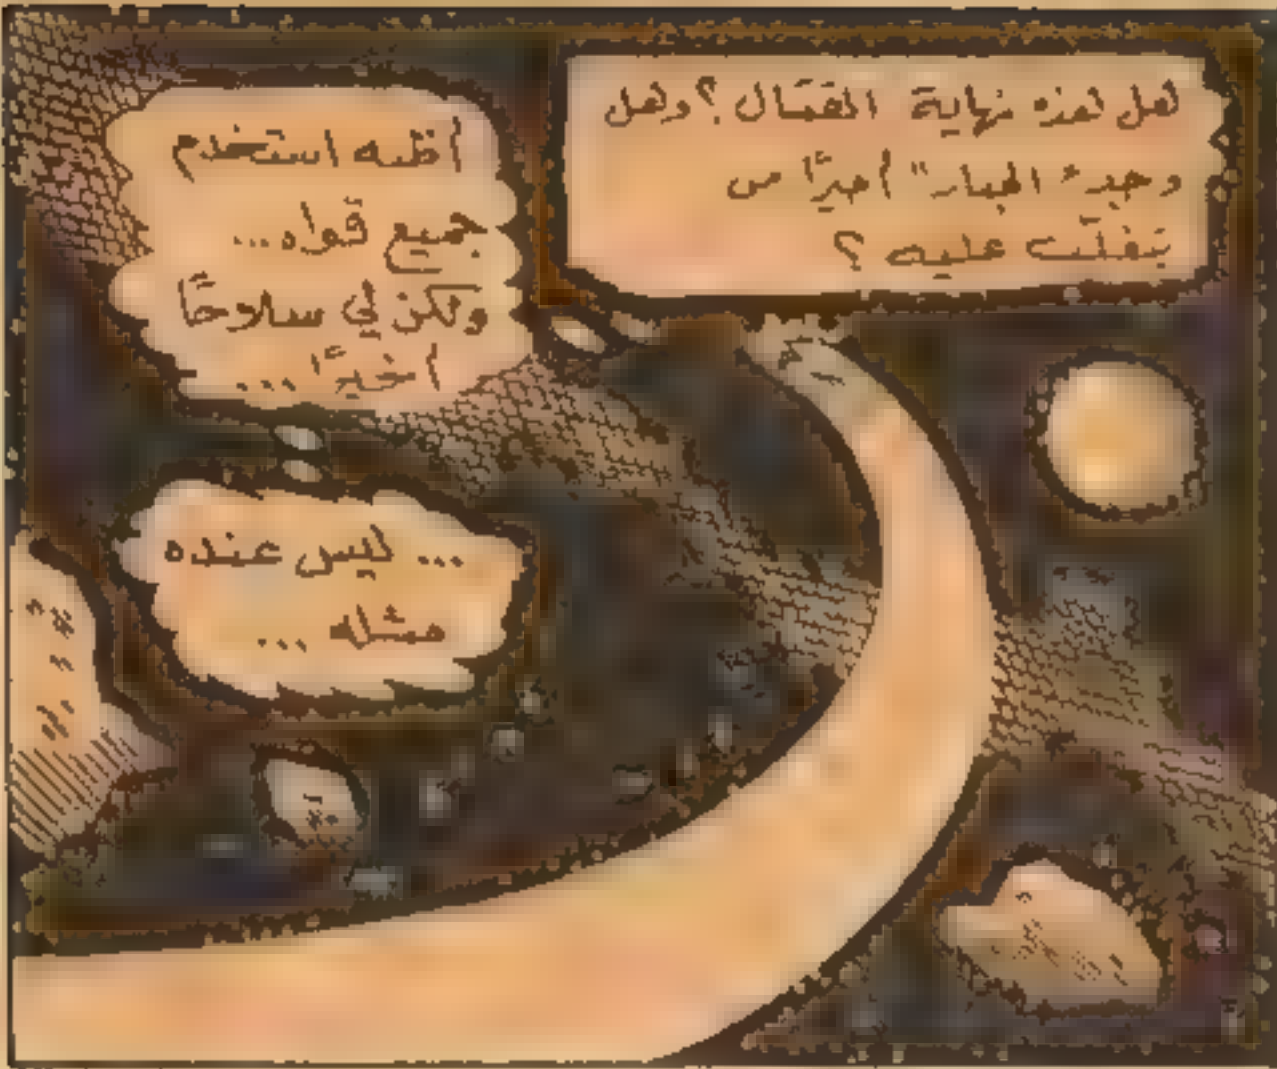 هل هذه نهاية القتال ؟ وهل
وجد "الجبار" أخيرًا من
يتغلّب عليه ؟
أظنه استخدم
جميع قواه...
ولكن لي سلاحًا
أخيرًا ...
... ليس عنده
مثله ...